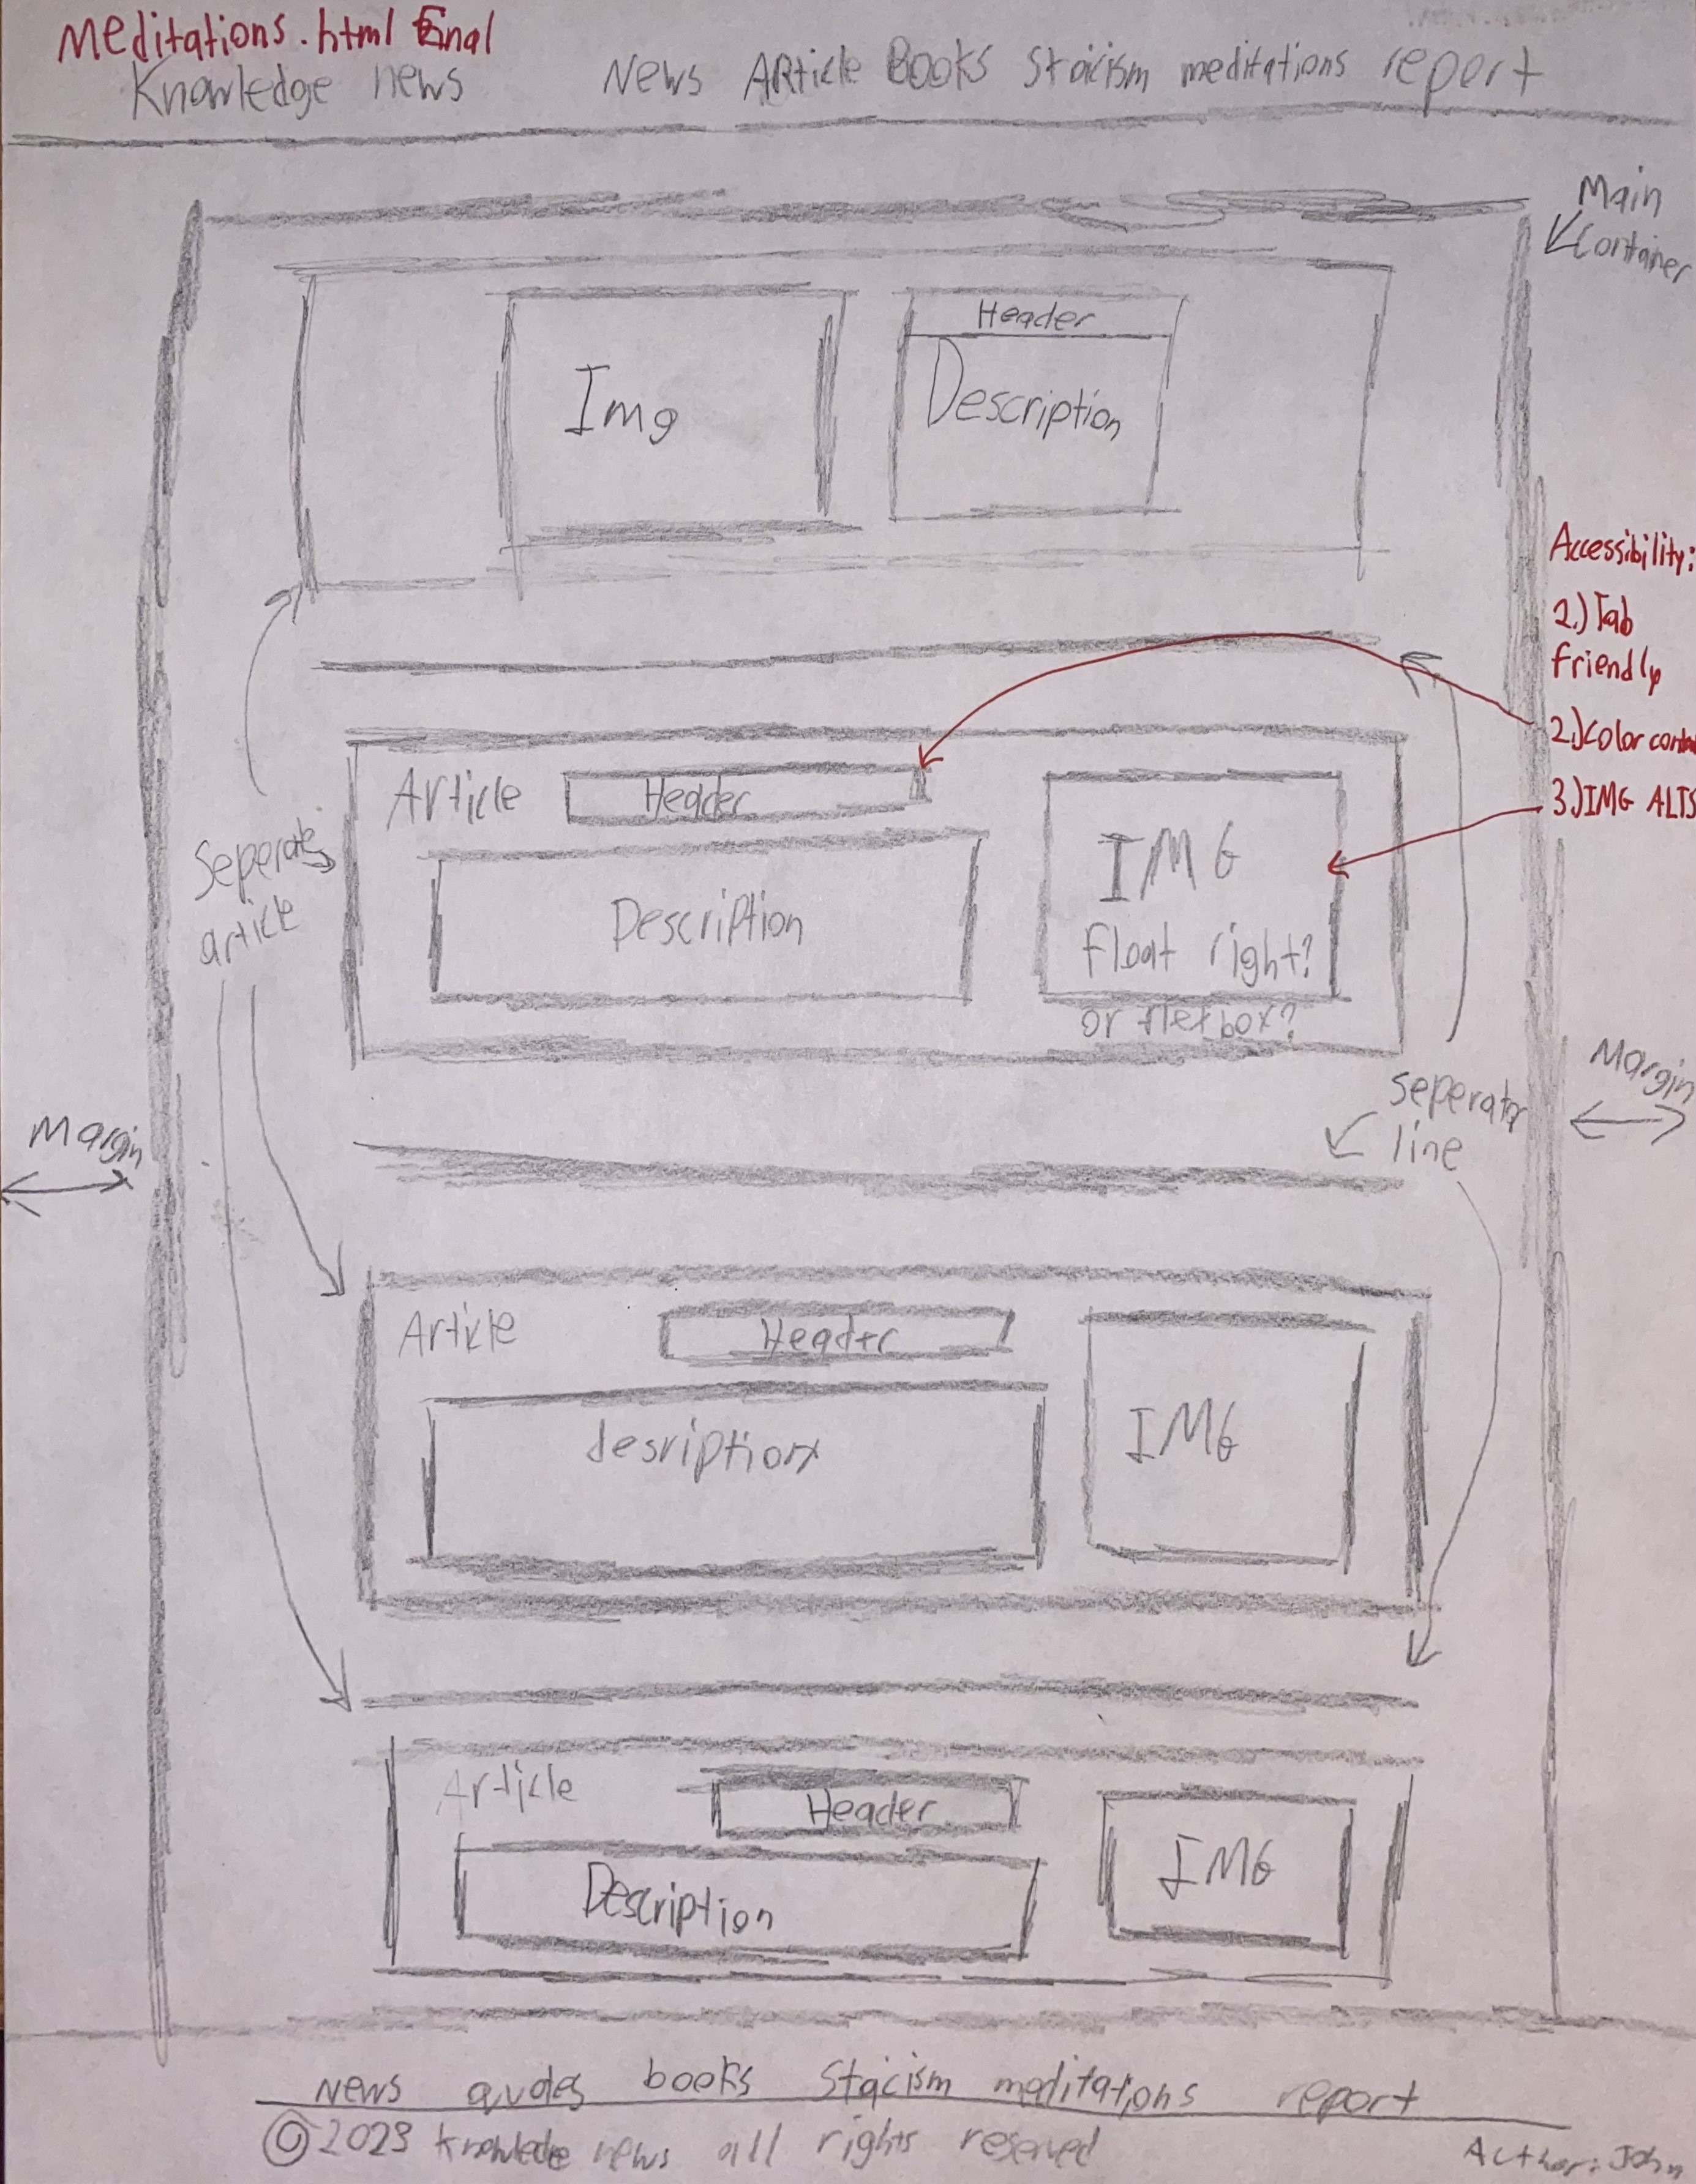 Meditations.html Final
Knowledge news News ARticle Books Stoicism meditations report
Main
Container
Img
Header
Description
Accessibility:
1.) Tab
friendly
2.) Color
3.) IMG ALTS
Article Header
IMG
Description
float right?
or flexbox?
Seperate
article
Margin
seperator
line
Margin
Article Header
IMG
desription
Article Header
IMG
Description
News quotes books Stoicism meditations report
© 2023 knowledge news all rights reserved
Author: John